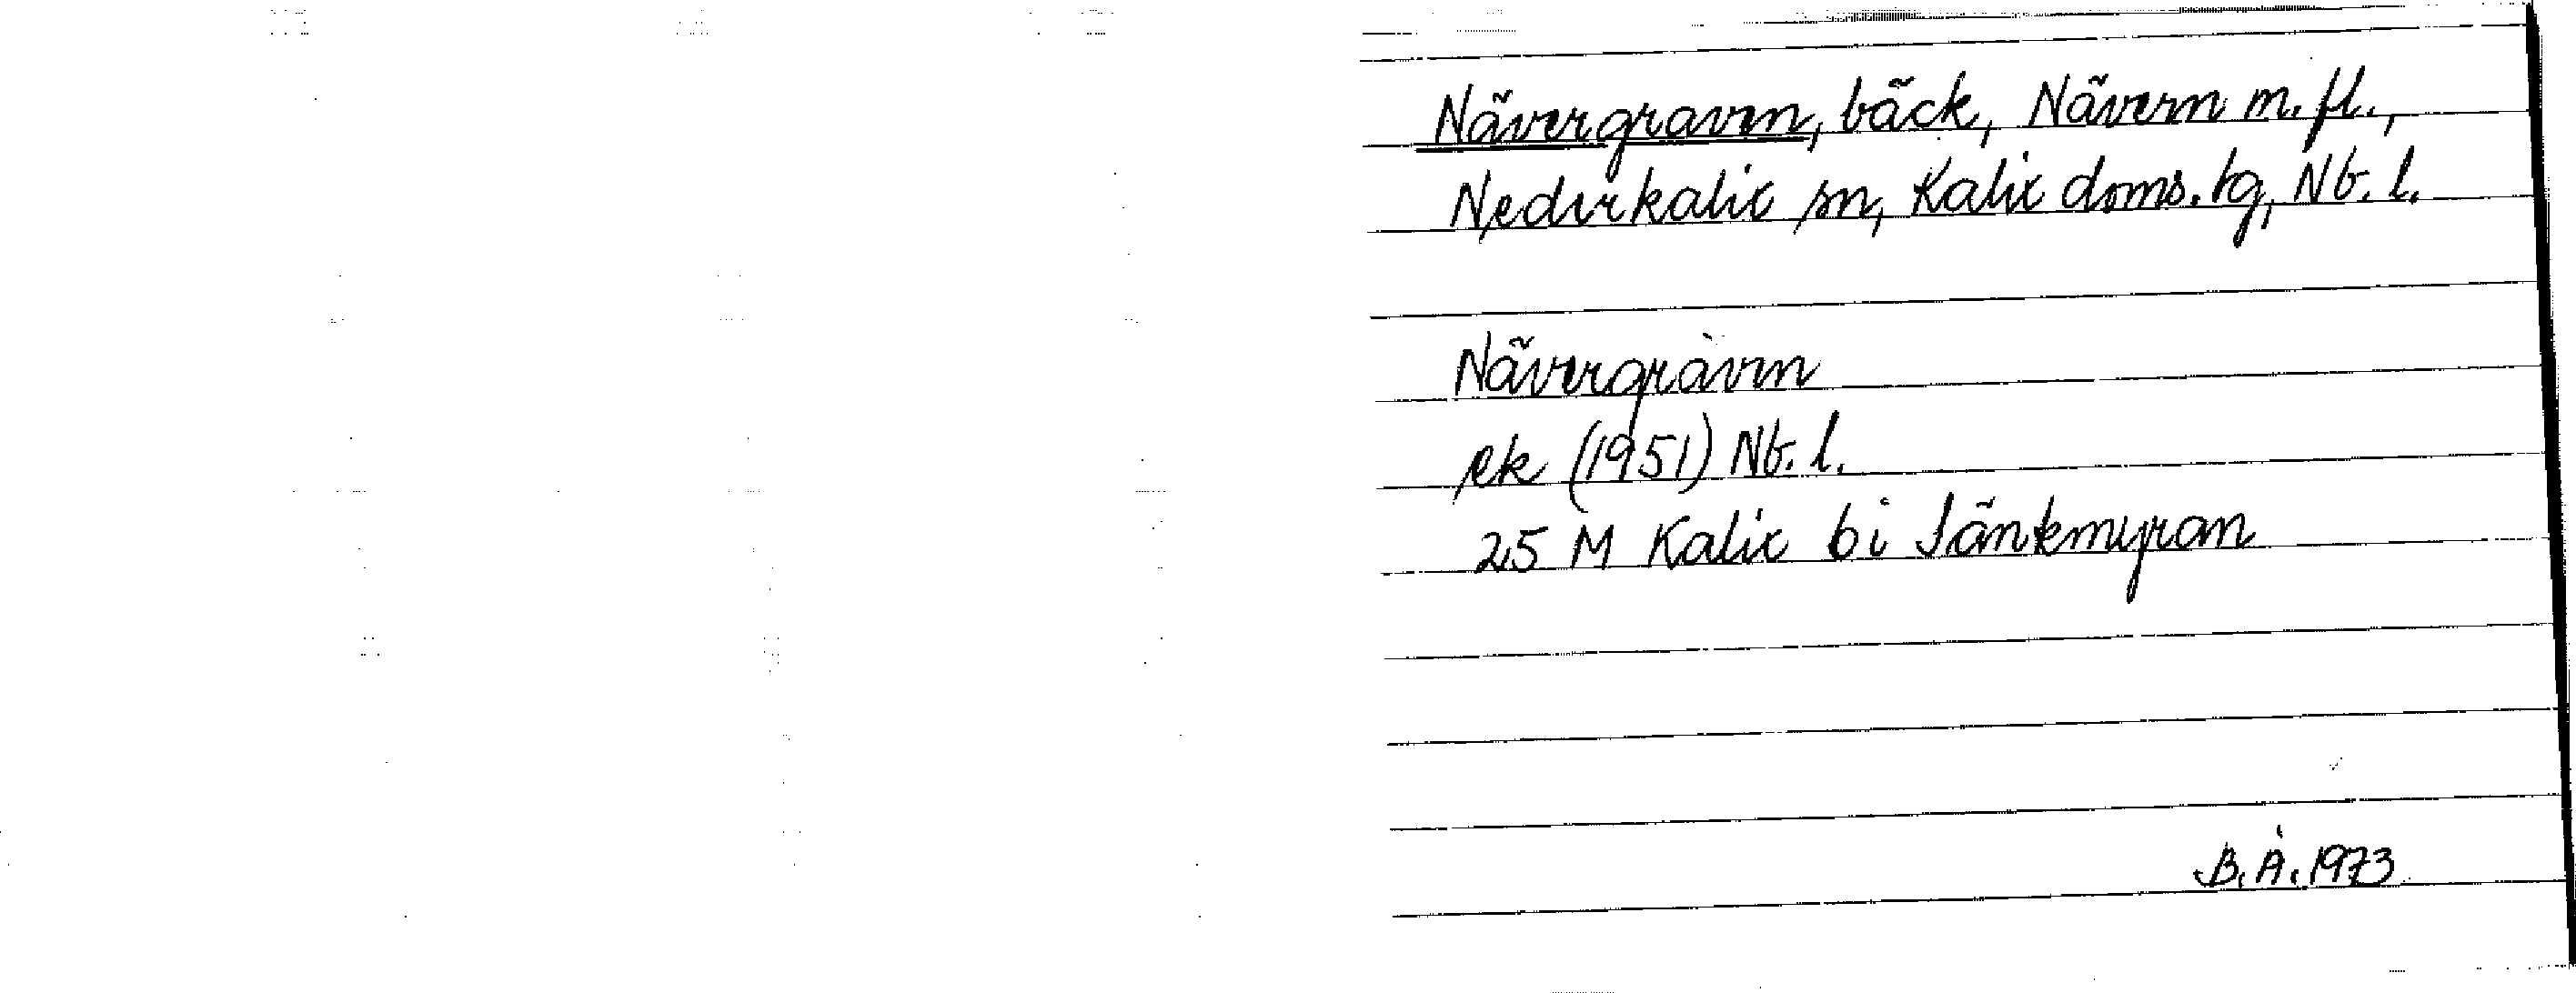 Nävergraven, bäck, Nävern m.fl.,
Nederkalix sn, Kalix doms.lg, Nb.l.
Nävergraven
ek (1951) Nb.l.
25 M Kalix bi Jänkmyran
B.Å.1973